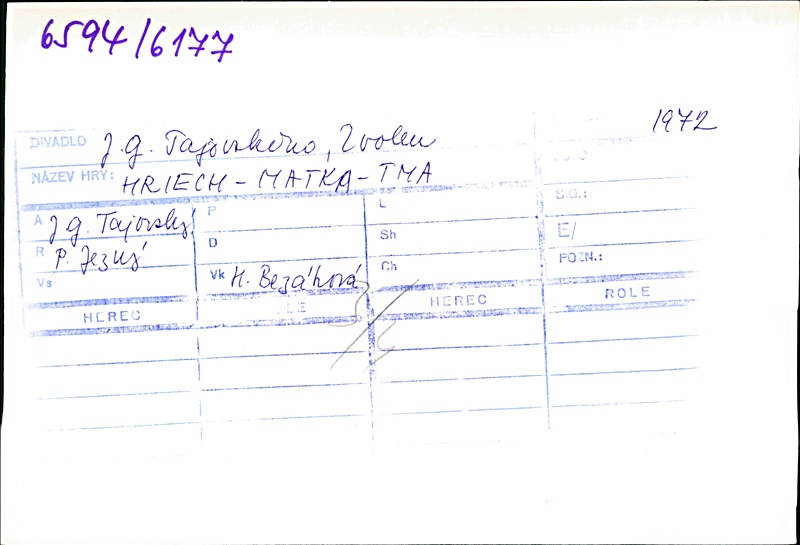 6594/6177
1972
DIVADLO J. G. Tajovského, Zvolen
NÁZEV HRY: HRIECH - MATKA - TMA
A J. G. Tajovský P L S.G.:
R P. Jezný D Sh E/
Vs Vk H. Bezáková Ch POZN.:
HEREC HEREC ROLE